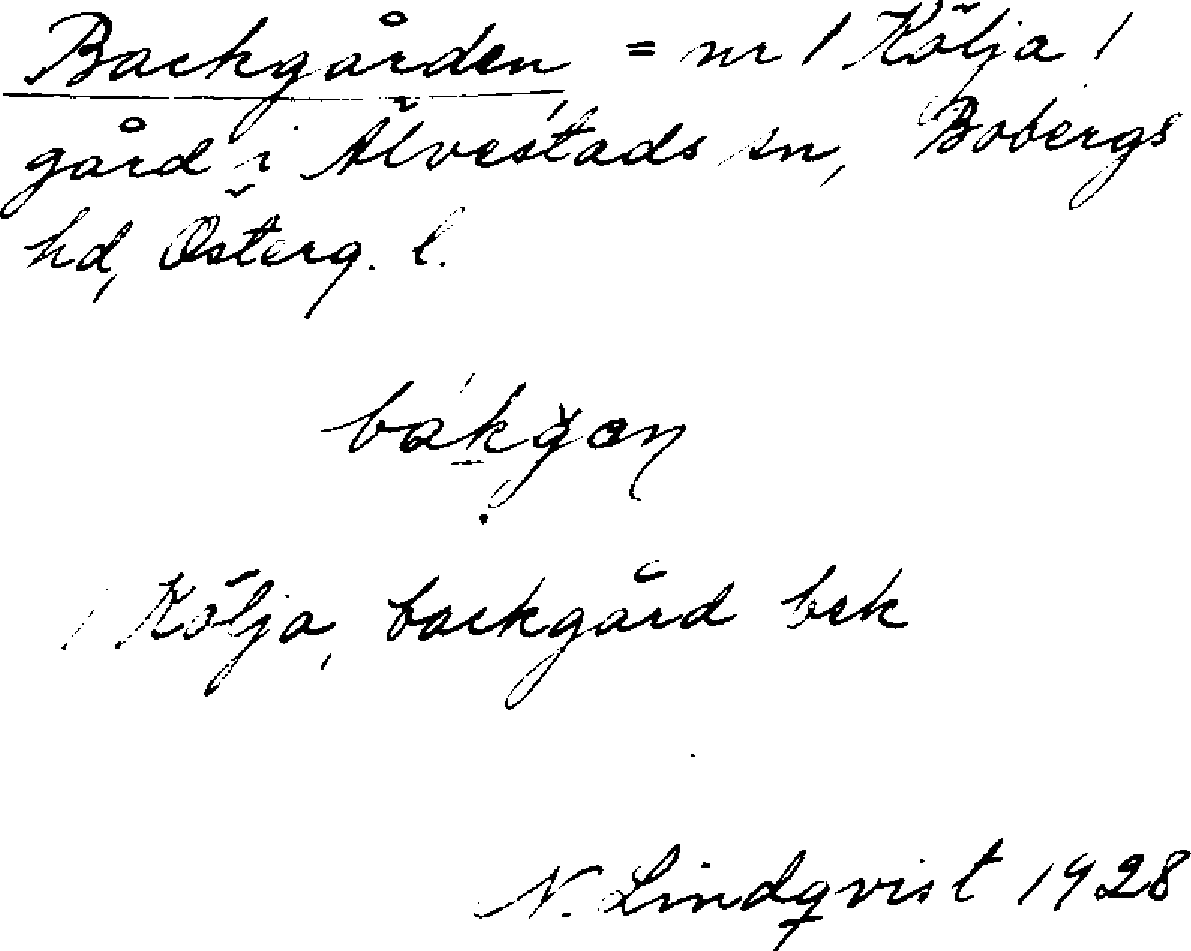 Backgården = nr 1 Kölja /
gård i Älvestads sn, Bobergs
hd, Österg. l.
/ Kölja, backgård bek
N. Lindqvist 1928